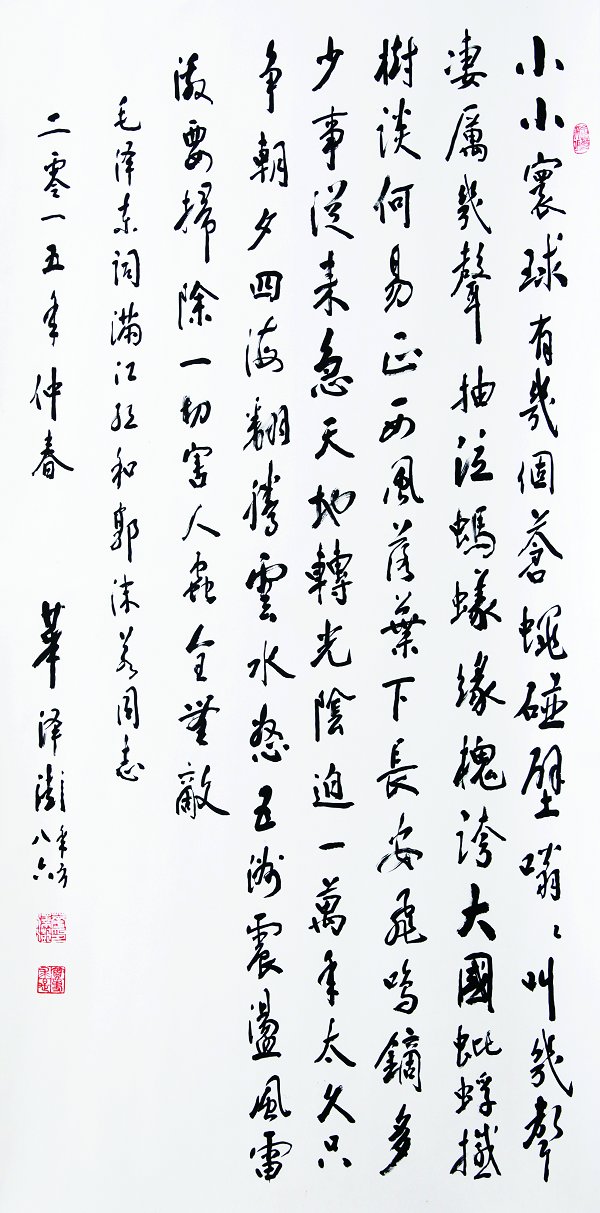 小小寰球有幾個蒼蠅碰壁嗡〻叫幾聲
凄厲幾聲抽泣螞蟻緣槐誇大國蚍蜉撼
樹談何易正西風落葉下長安飛鳴鏑多
少事從来急天地轉光陰迫一萬年太久只
争朝夕四海翻騰雲水怒五洲震盪風雷
激要掃除一切害人蟲全無敵
毛泽东詞满江红和郭沫若同志
二零一五年仲春 華泽 年方八六